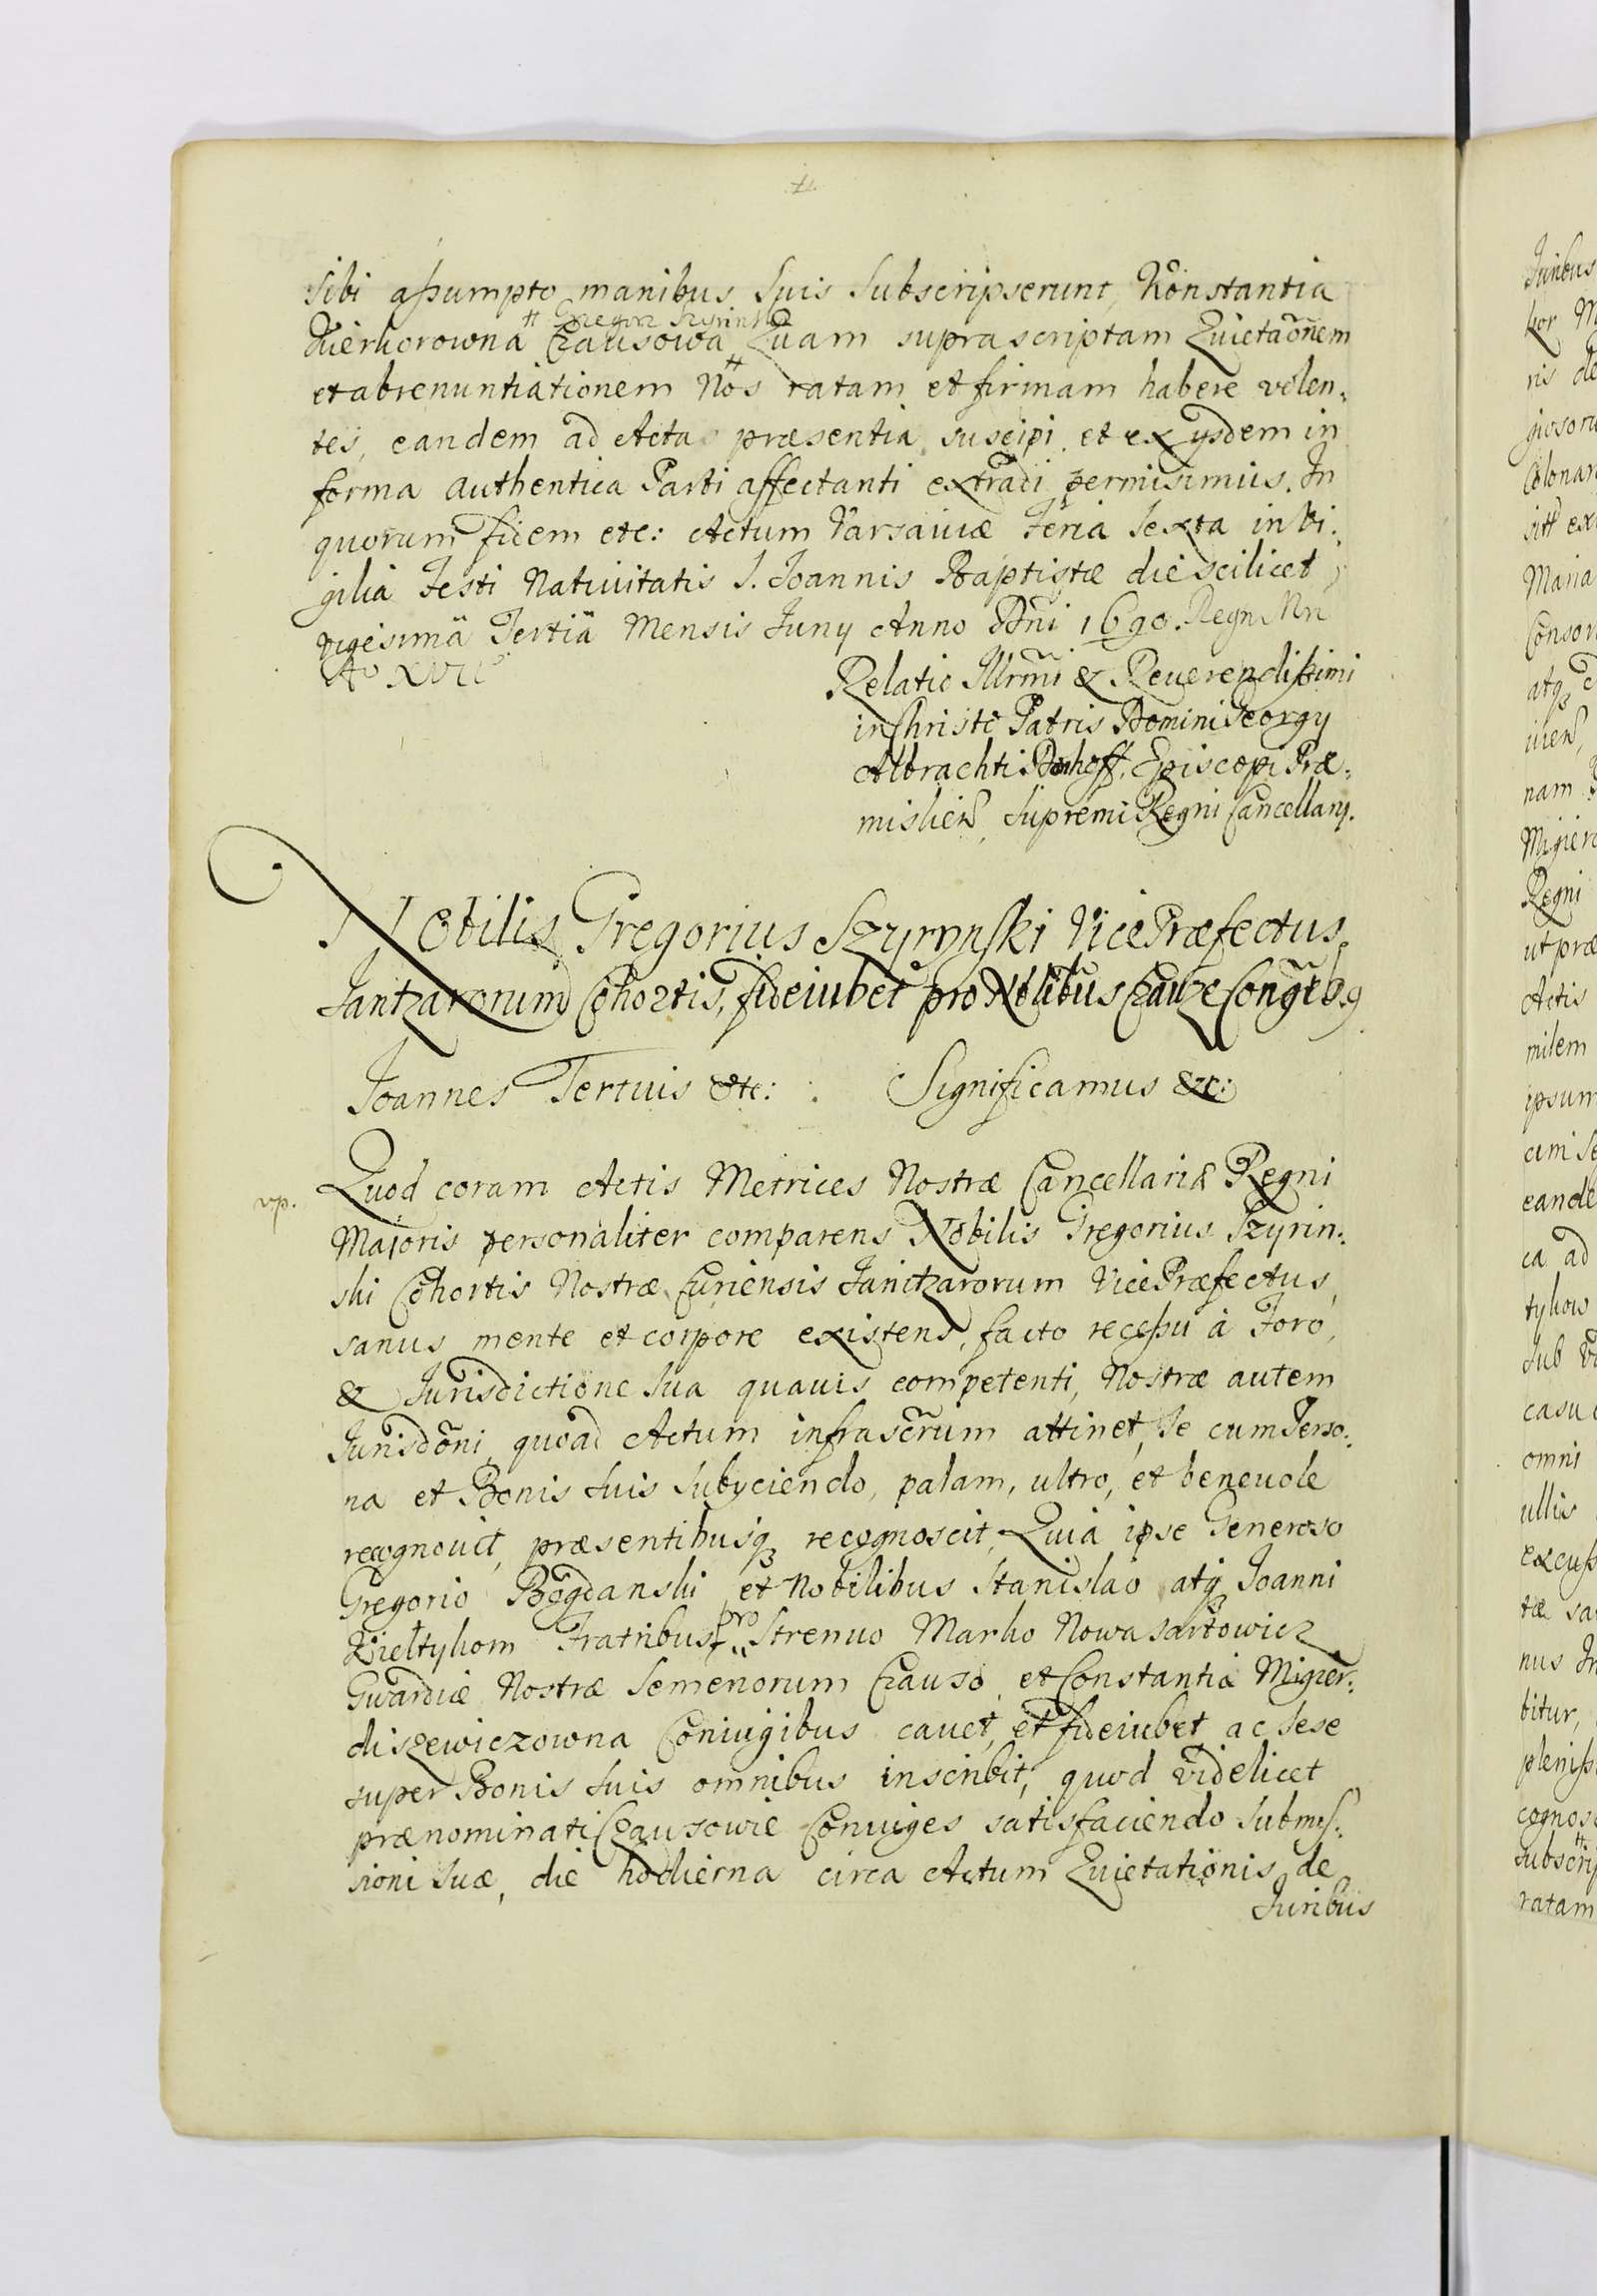 sibi aßumpto manibus suis subscripserunt, Konstantia
# Gregorz Szyrinski
Kierkorowna Czausowa Quam suprascriptam Quietaõnem
#
et abrenuntiationem Nos ratam et firmam habere volen:
tes, eandem ad Acta præsentia suscipi et ex ysdem in
forma authentica Parti affectanti extradi permisimus. In
quorum fidem etc: Actum Varsaviæ Feria Sexta in Vi:
gilia Festi Nativitatis S. Joannis Baptistæ die scilicet
vigesima Tertia Mensis Juny Anno Dñi 1690. Regn Nri
Ao XVII
Relatio Illrmi & Reuerendißimi
in Christo Patris Domini Georgy
Albrachti Denhoff, Episcopi Præ:
mislien, Supremi Regni Cancellarij.
Nobilis Gregorius Szyrynski Vice Præfectus
Jantzarorum Cohortis, fideiubet pro Nobilibus Czauze Congibg
Joannes Tertius etc: Significamus &c:
vp.
Quod coram Actis Metrices Nostræ Cancellariæ Regni
Majoris personaliter comparens Nobilis Gregorius Szyrin:
ski Cohortis Nostræ Curiensis Janitzarorum Vice Præfectus,
sanus mente et corpore existens, facto receßu à Foro,
& Jurisdictione sua quavis competenti, Nostræ autem
Jurisdõni quoad Actum infrascrum attinet, se cum Perso:
na et Bonis suis subyciendo, palam, ultro, et benevole
recognouit, præsentibusqꝫ recognoscit, Quia ipse Generoso
Gregorio Bogdanski et Nobilibus Stanislao atqꝫ Joanni
pro
Kieltykom Fratribus, Strenuo Marko Nowasartowicz
Gwardiæ Nostræ Semenorum Czauso et Constantia Migier:
diszewiczowna Coniugibus cauet, et fideiubet, ac sese
super Bonis suis omnibus inscribit, quod videlicet
prænominati Czausowie Coniuges satisfaciendo Submis:
sioni suæ, die hodierna circa Actum Quietationis de
Juribus